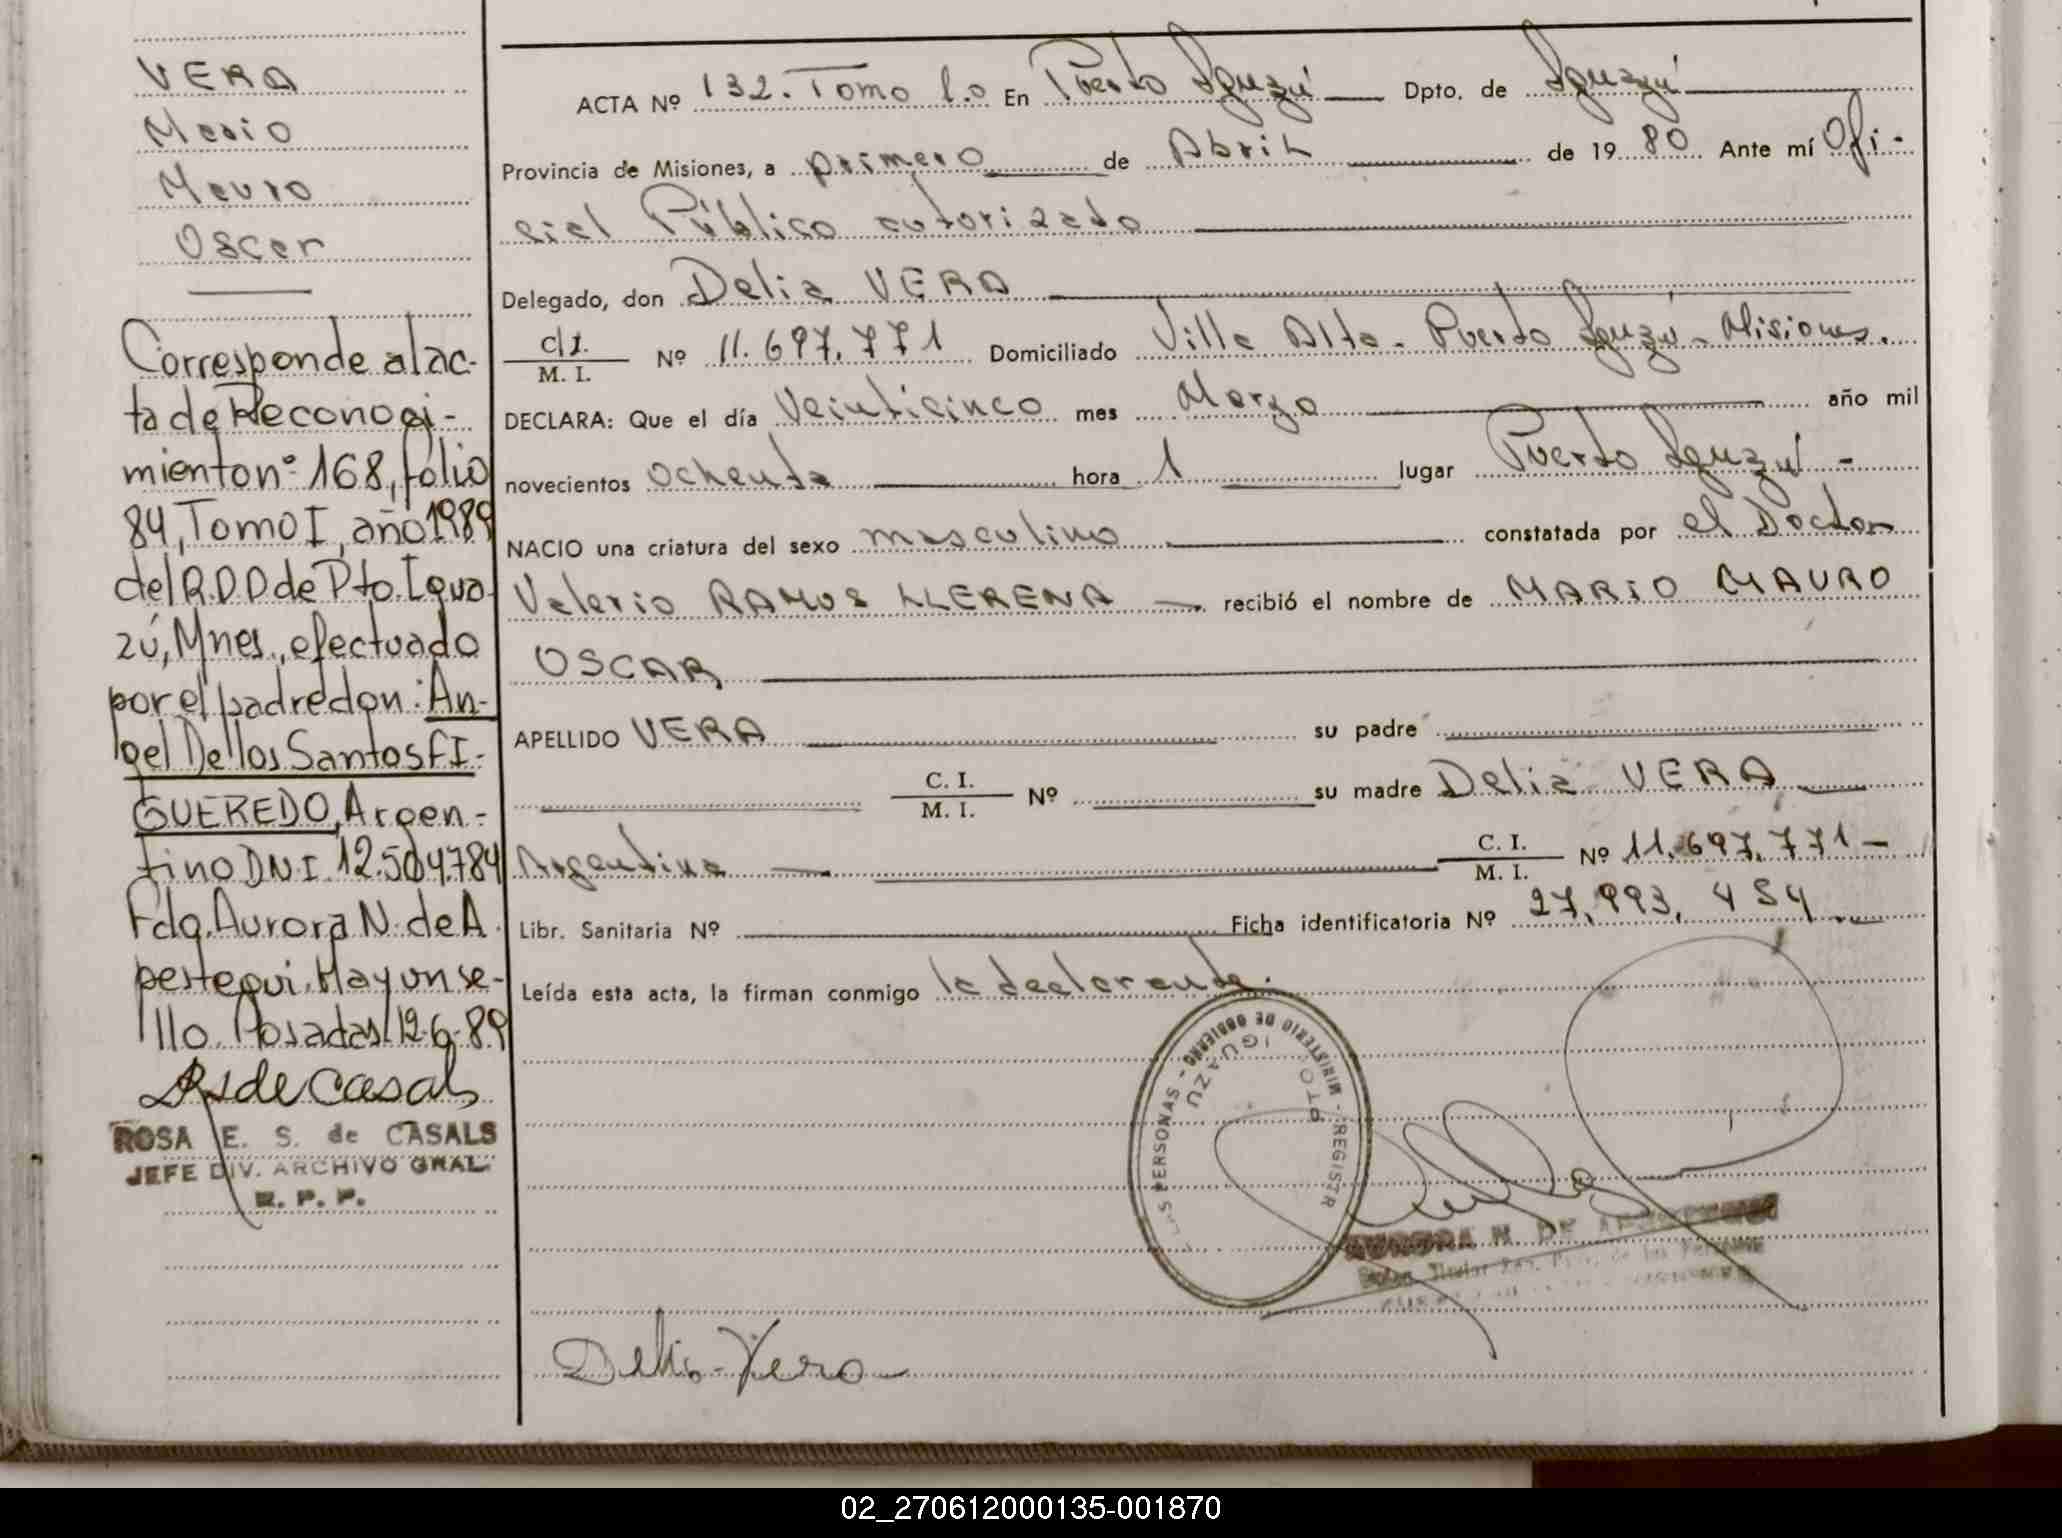 VERA
Mario
Mauro
Oscar
Corresponde al ac-
ta de Reconoci-
miento nº 168, folio
84, Tomo I, año 1989
del R.D.D de Pto. Igua-
zú, Mnes., efectuado
por el padre don: An-
gel De los Santos FI-
GUEREDO, Argen-
tino DNI 12.504.784
Fdo. Aurora N. de A
pestegui. Hay un se-
llo. Posadas 12-6-89
RsdeCasals
ROSA E. S. de CASALS
JEFE DIV. ARCHIVO GRAL.
R. P. P.
ACTA Nº 132. Tomo 1.o En Puerto Iguazú Dpto. de Iguazú
Provincia de Misiones, a primero de Abril de 1980 Ante mí Ofi-
cial Público autorizado
Delegado, don Delia VERA
C.I. M. I. Nº 11.697.771 Domiciliado Villa Alta - Puerto Iguazú - Misiones.
DECLARA: Que el día Veinticinco mes Marzo año mil
novecientos ochenta hora 1 lugar Puerto Iguazú -
NACIO una criatura del sexo masculino constatada por el Doctor
Valerio RAMOS LLERENA recibió el nombre de MARIO MAURO
OSCAR
APELLIDO VERA su padre
C. I. M. I. Nº su madre Delia VERA
Argentina C. I. M. I. Nº 11.697.771 -
Libr. Sanitaria Nº Ficha identificatoria Nº 27.993.454
Leída esta acta, la firman conmigo la declarante.
MINISTERIO DE GOBIERNO - REGISTR LAS PERSONAS -
PTO. IGUAZU
AURORA N. DE APESTEGUI
Delia Vera
02_270612000135-001870